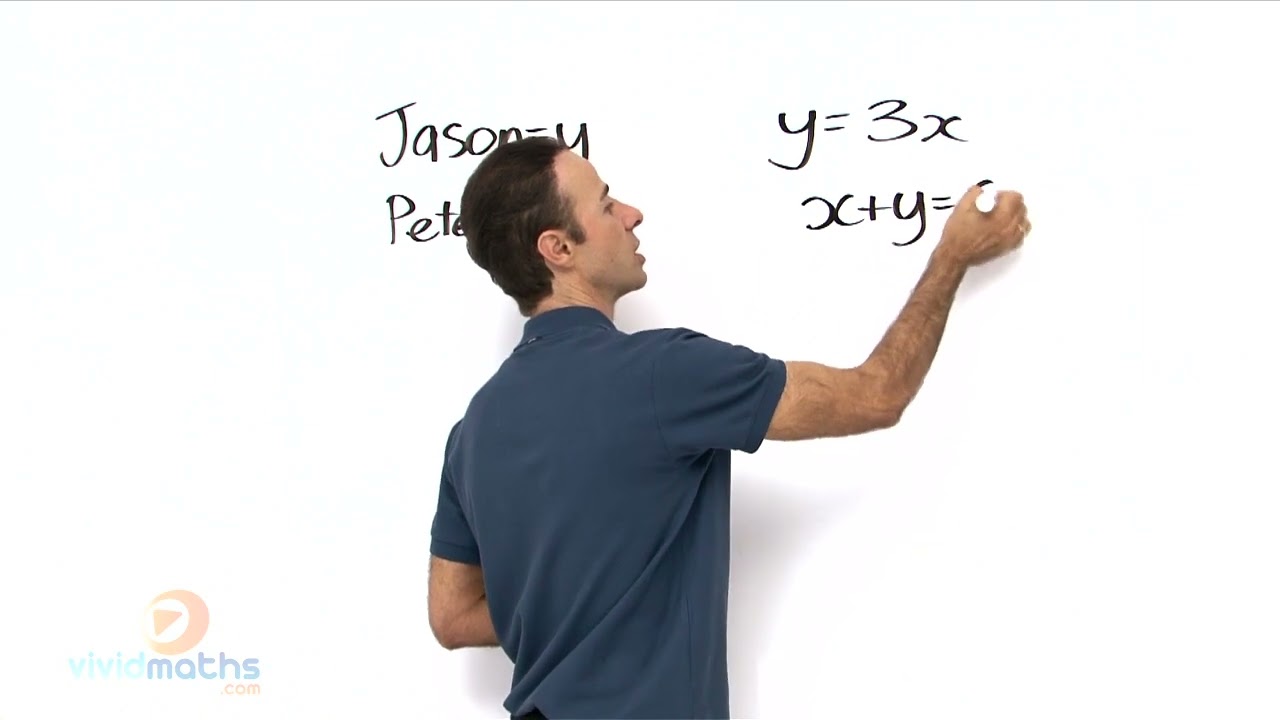 Jason=y
y=3x
x+y=
vividmaths
.com